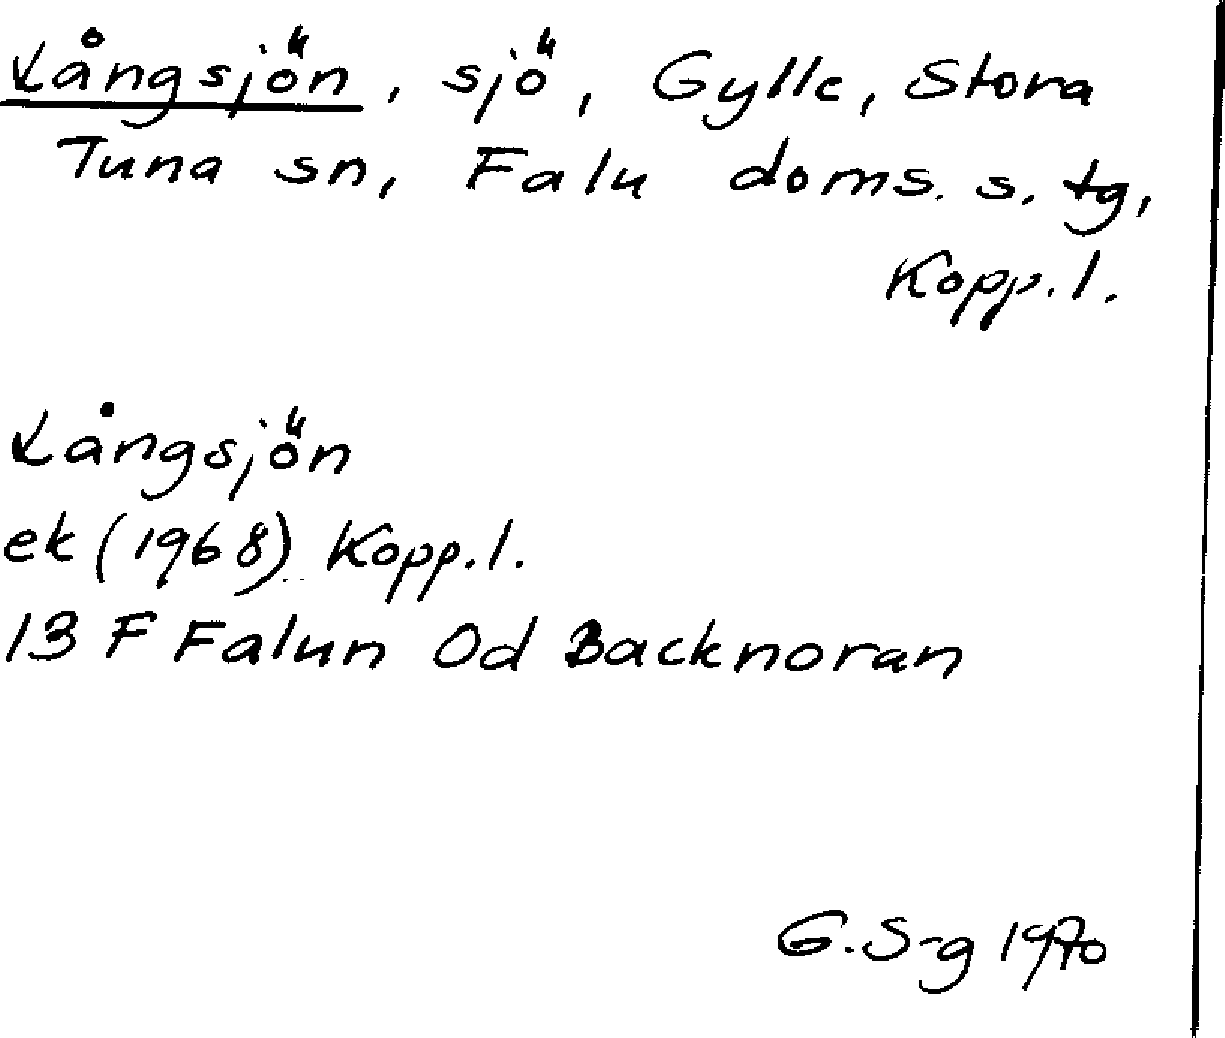 Långsjön, sjö, Gylle, Stora
Tuna sn, Falu doms. s. tg,
Kopp. l.
Långsjön
ek (1968) Kopp. l.
13 F Falun 0d Backnoran
G. S-g 1970